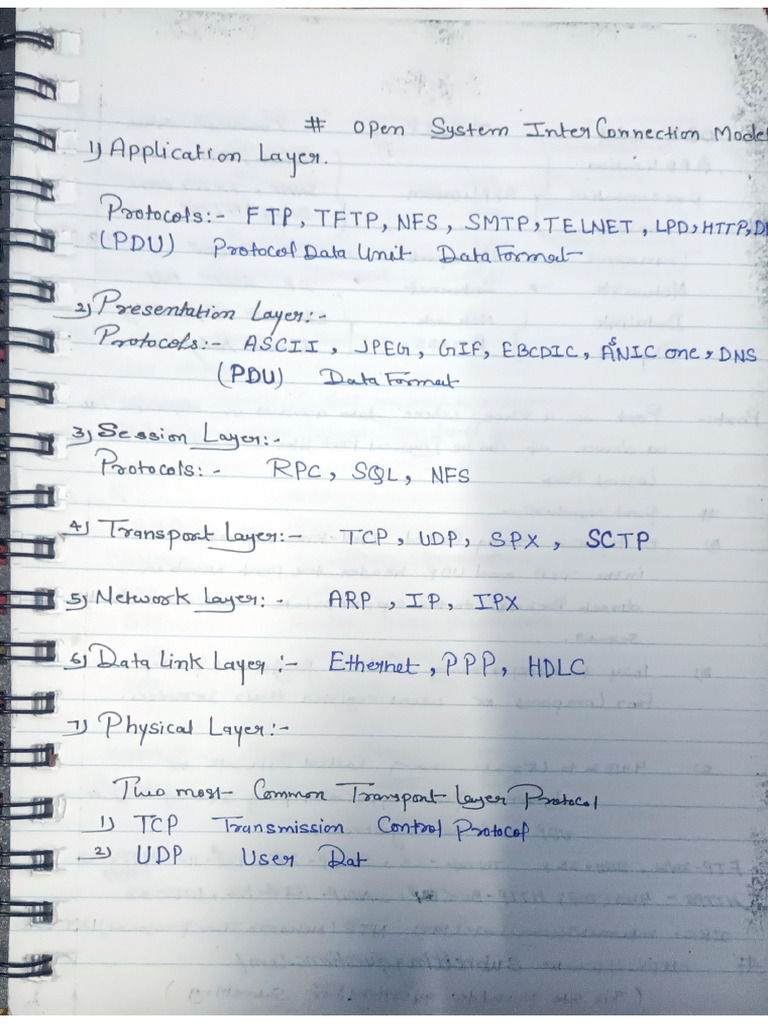 # Open System InterConnection Model
1) Application Layer.
Protocols:- FTP, TFTP, NFS, SMTP, TELNET, LPD, HTTP, D
(PDU) Protocol Data Unit Data Format
2) Presentation Layer:-
Protocols:- ASCII, JPEG, GIF, EBCDIC, one, DNS
(PDU) Data Format
3) Session Layer:-
Protocols:- RPC, SQL, NFS
4) Transport Layer:- TCP, UDP, SPX, SCTP
5) Network Layer:- ARP, IP, IPX
6) Data Link Layer:- Ethernet, PPP, HDLC
7) Physical Layer:-
Two most Common Transport Layer Protocol
1) TCP Transmission Control Protocol
2) UDP User Dat